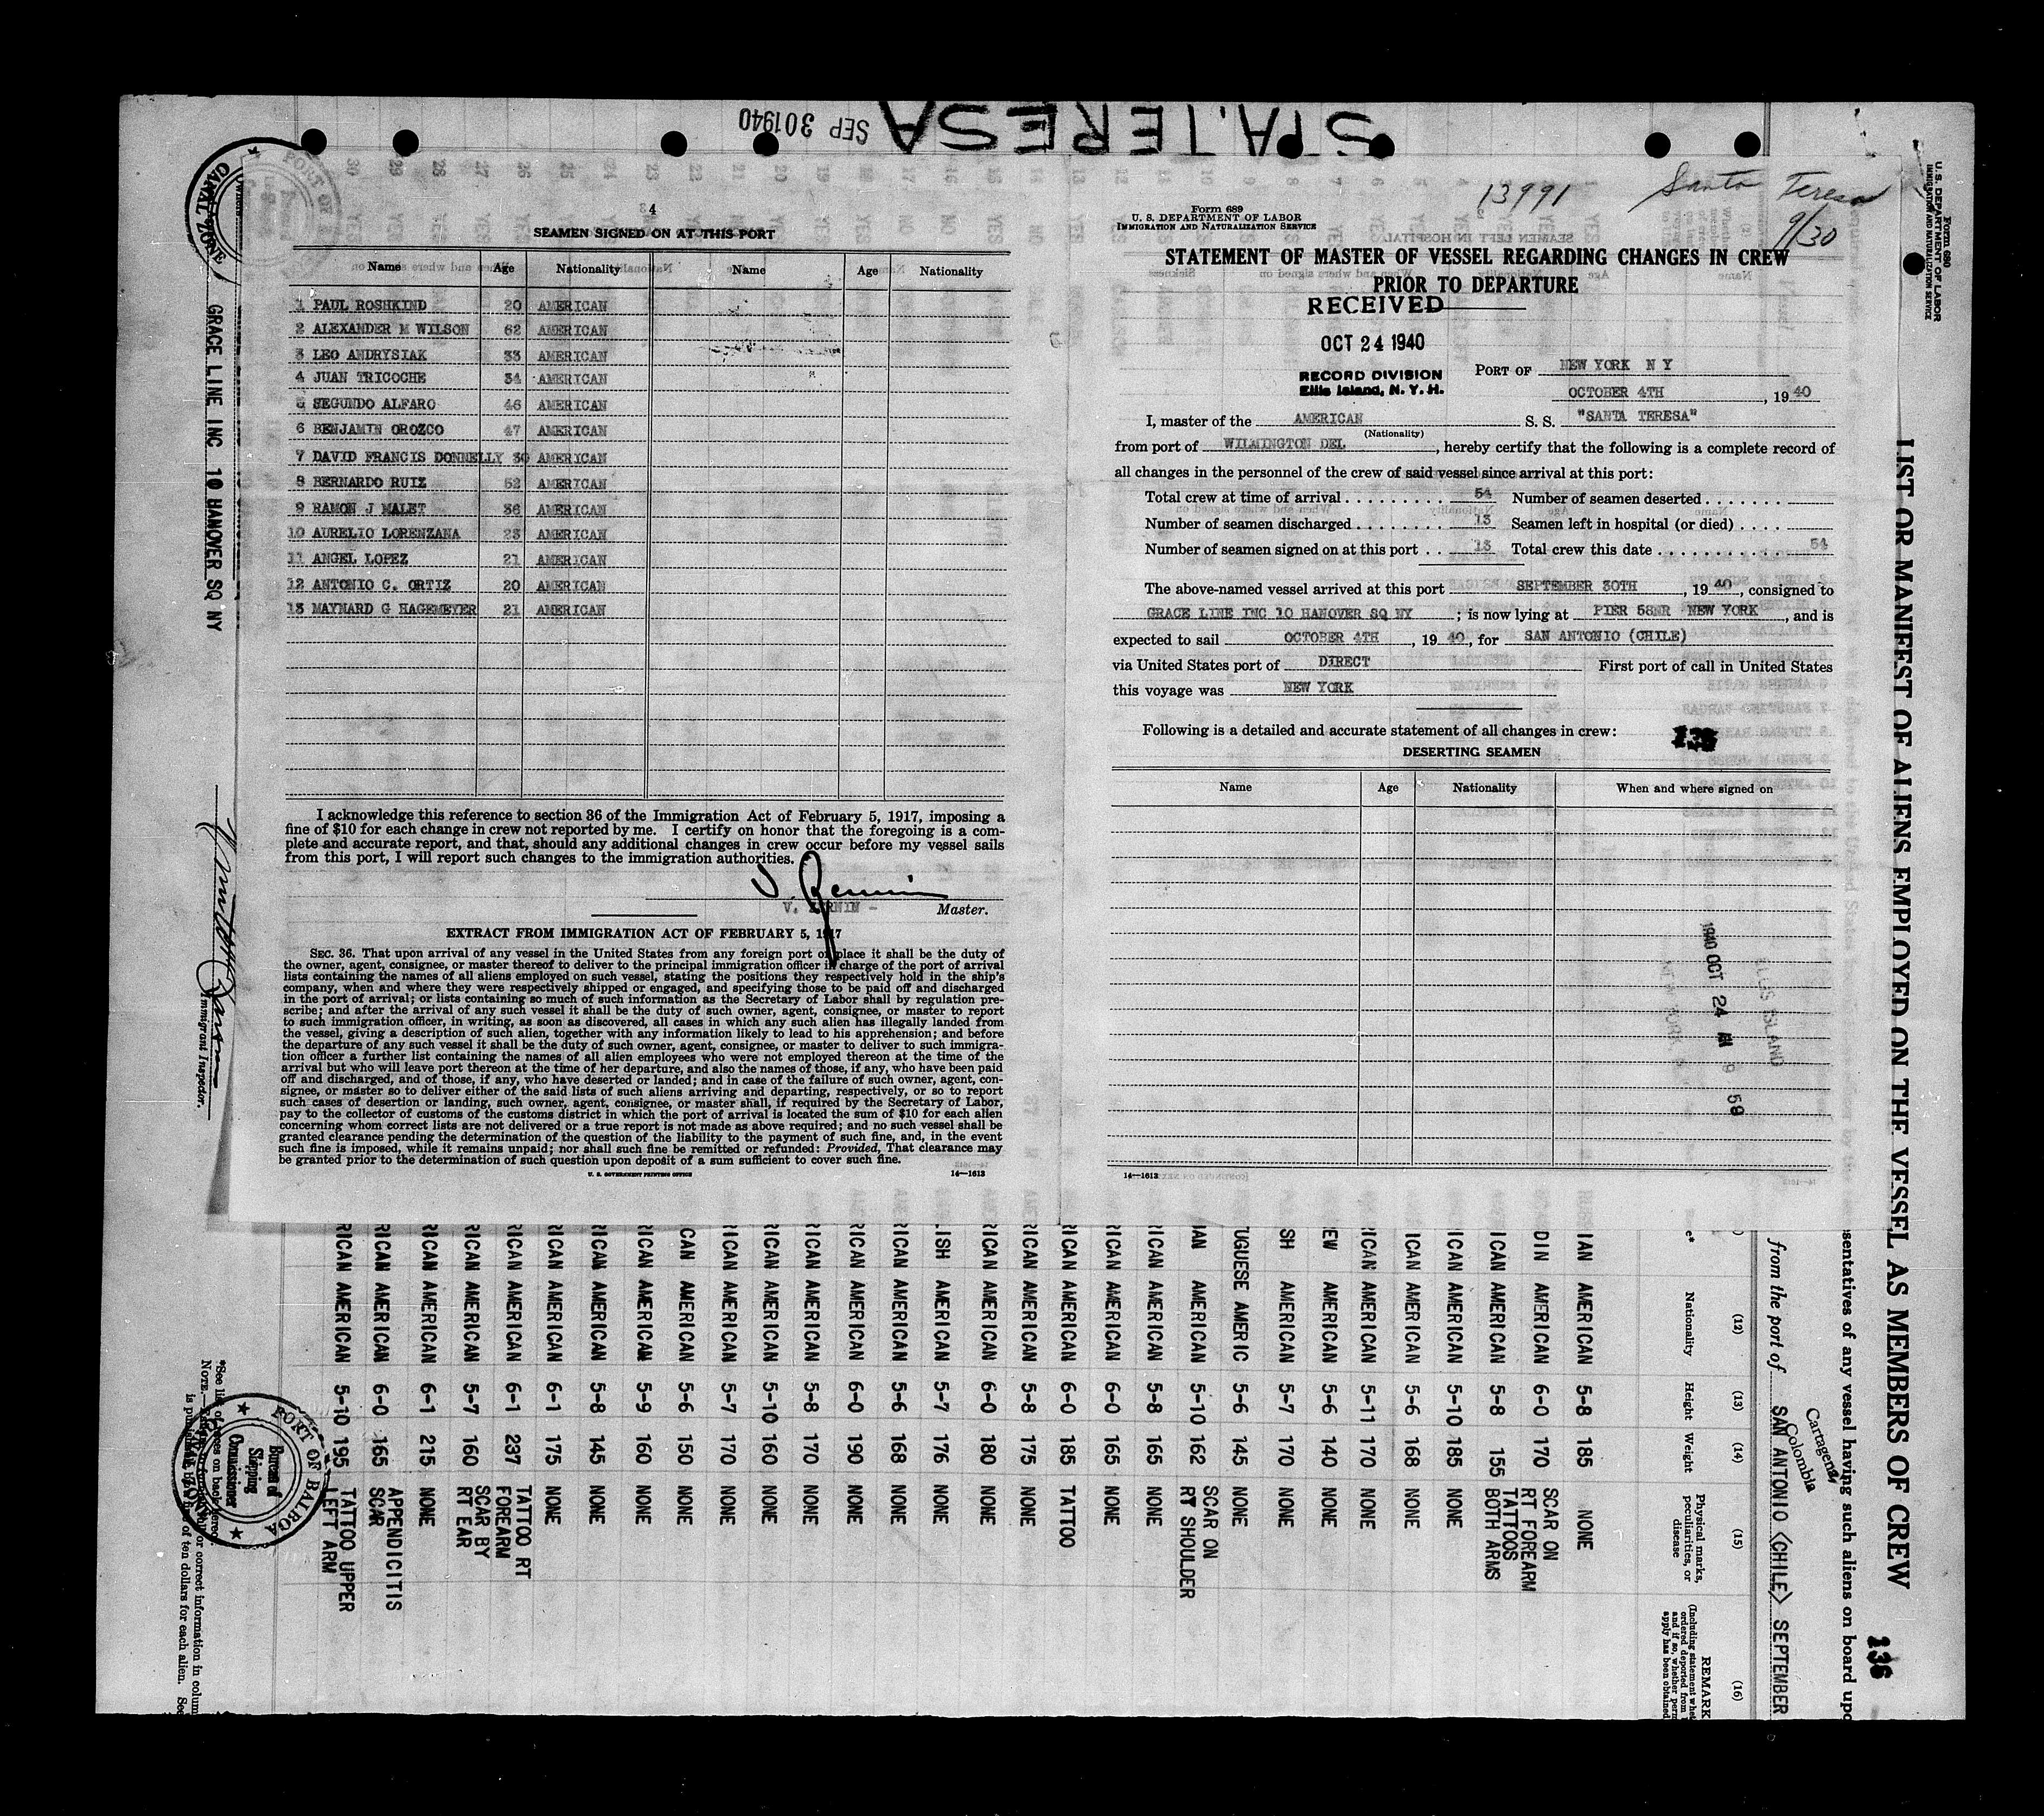 STA. TERESA
SEP 30 1940
4
SEAMEN SIGNED ON AT THIS PORT
Name Age Nationality Name Age Nationality
1 PAUL ROSHKIND 20 AMERICAN
2 ALEXANDER M WILSON 62 AMERICAN
3 LEO ANDRYSIAK 33 AMERICAN
4 JUAN TRICOCHE 34 AMERICAN
5 SEGUNDO ALFARO 46 AMERICAN
6 BENJAMIN OROZCO 47 AMERICAN
7 DAVID FRANCIS DONNELLY 30 AMERICAN
8 BERNARDO RUIZ 52 AMERICAN
9 RAMON J MALET 36 AMERICAN
10 AURELIO LORENZANA 23 AMERICAN
11 ANGEL LOPEZ 21 AMERICAN
12 ANTONIO C. ORTIZ 20 AMERICAN
13 MAYNARD G HAGEMEYER 21 AMERICAN
I acknowledge this reference to section 36 of the Immigration Act of February 5, 1917, imposing a
fine of $10 for each change in crew not reported by me. I certify on honor that the foregoing is a com-
plete and accurate report, and that, should any additional changes in crew occur before my vessel sails
from this port, I will report such changes to the immigration authorities.
Master.
EXTRACT FROM IMMIGRATION ACT OF FEBRUARY 5, 1917
SEC. 36. That upon arrival of any vessel in the United States from any foreign port or place it shall be the duty of
the owner, agent, consignee, or master thereof to deliver to the principal immigration officer in charge of the port of arrival
lists containing the names of all aliens employed on such vessel, stating the positions they respectively hold in the ship's
company, when and where they were respectively shipped or engaged, and specifying those to be paid off and discharged
in the port of arrival; or lists containing so much of such information as the Secretary of Labor shall by regulation pre-
scribe; and after the arrival of any such vessel it shall be the duty of such owner, agent, consignee, or master to report
to such immigration officer, in writing, as soon as discovered, all cases in which any such alien has illegally landed from
the vessel, giving a description of such alien, together with any information likely to lead to his apprehension; and before
the departure of any such vessel it shall be the duty of such owner, agent, consignee, or master to deliver to such immigra-
tion officer a further list containing the names of all alien employees who were not employed thereon at the time of the
arrival but who will leave port thereon at the time of her departure, and also the names of those, if any, who have been paid
off and discharged, and of those, if any, who have deserted or landed; and in case of the failure of such owner, agent, con-
signee, or master so to deliver either of the said lists of such aliens arriving and departing, respectively, or so to report
such cases of desertion or landing, such owner, agent, consignee, or master shall, if required by the Secretary of Labor,
pay to the collector of customs of the customs district in which the port of arrival is located the sum of $10 for each alien
concerning whom correct lists are not delivered or a true report is not made as above required; and no such vessel shall be
granted clearance pending the determination of the question of the liability to the payment of such fine, and, in the event
such fine is imposed, while it remains unpaid; nor shall such fine be remitted or refunded: Provided, That clearance may
be granted prior to the determination of such question upon deposit of a sum sufficient to cover such fine.
U. S. GOVERNMENT PRINTING OFFICE 14—1613
13991
Santa Teresa
9/30
Form 689
U. S. DEPARTMENT OF LABOR
IMMIGRATION AND NATURALIZATION SERVICE
STATEMENT OF MASTER OF VESSEL REGARDING CHANGES IN CREW
PRIOR TO DEPARTURE
RECEIVED
OCT 24 1940
RECORD DIVISION
Ellis Island, N. Y. H.
PORT OF NEW YORK N Y
OCTOBER 4TH, 1940
I, master of the AMERICAN S. S. "SANTA TERESA"
(Nationality)
from port of WILMINGTON DEL, hereby certify that the following is a complete record of
all changes in the personnel of the crew of said vessel since arrival at this port:
Total crew at time of arrival 54 Number of seamen deserted
Number of seamen discharged 13 Seamen left in hospital (or died)
Number of seamen signed on at this port 13 Total crew this date 54
The above-named vessel arrived at this port SEPTEMBER 30TH, 1940, consigned to
GRACE LINE INC 10 HANOVER SQ NY; is now lying at PIER 58NR NEW YORK, and is
expected to sail OCTOBER 4TH, 1940, for SAN ANTONIO (CHILE)
via United States port of DIRECT First port of call in United States
this voyage was NEW YORK
Following is a detailed and accurate statement of all changes in crew:
DESERTING SEAMEN
Name Age Nationality When and where signed on
1940 OCT 24
ELLIS ISLAND
14—1613
Form 680
U. S. DEPARTMENT OF LABOR
IMMIGRATION AND NATURALIZATION SERVICE
LIST OR MANIFEST OF ALIENS EMPLOYED ON THE VESSEL AS MEMBERS OF CREW
136
sentatives of any vessel having such aliens on board upo
from the port of SAN ANTONIO (CHILE) SEPTEMBER
Cartagena
Colombia
(12) (13) (14) (15) (16)
Nationality Height Weight Physical marks, peculiarities, or disease REMARK
IAN AMERICAN 5-8 185 NONE
DIN AMERICAN 6-0 170 SCAR ON RT FOREARM
ICAN AMERICAN 5-8 155 TATTOOS BOTH ARMS
ICAN AMERICAN 5-10 185 NONE
ICAN AMERICAN 5-6 168 NONE
ICAN AMERICAN 5-11 170 NONE
EW AMERICAN 5-7 140 NONE
SH AMERICAN 5-7 170 NONE
TUGUESE AMERIC 5-6 145 NONE
IAN AMERICAN 5-10 162 SCAR ON RT SHOULDER
RICAN AMERICAN 5-8 165 NONE
RICAN AMERICAN 6-0 165 NONE
RICAN AMERICAN 6-0 185 TATTOO
RICAN AMERICAN 5-8 175 NONE
RICAN AMERICAN 6-0 180 NONE
LISH AMERICAN 5-7 176 NONE
RICAN AMERICAN 5-6 168 NONE
RICAN AMERICAN 6-0 190 NONE
RICAN AMERICAN 5-8 170 NONE
RICAN AMERICAN 5-10 160 NONE
RICAN AMERICAN 5-7 170 NONE
CAN AMERICAN 5-6 150 NONE
RICAN AMERICAN 5-9 160 NONE
RICAN AMERICAN 5-8 145 NONE
RICAN AMERICAN 6-1 175 NONE
RICAN AMERICAN 6-1 237 TATTOO RT FOREARM
RICAN AMERICAN 5-7 160 SCAR BY RT EAR
RICAN AMERICAN 6-1 215 NONE
RICAN AMERICAN 6-0 165 APPENDICITIS SCAR
RICAN AMERICAN 5-10 195 TATTOO UPPER LEFT ARM
GRACE LINE INC 10 HANOVER SQ NY
Immigrant Inspector.
CANAL ZONE
PORT OF BALBOA
Bureau of
Shipping
Commissioner